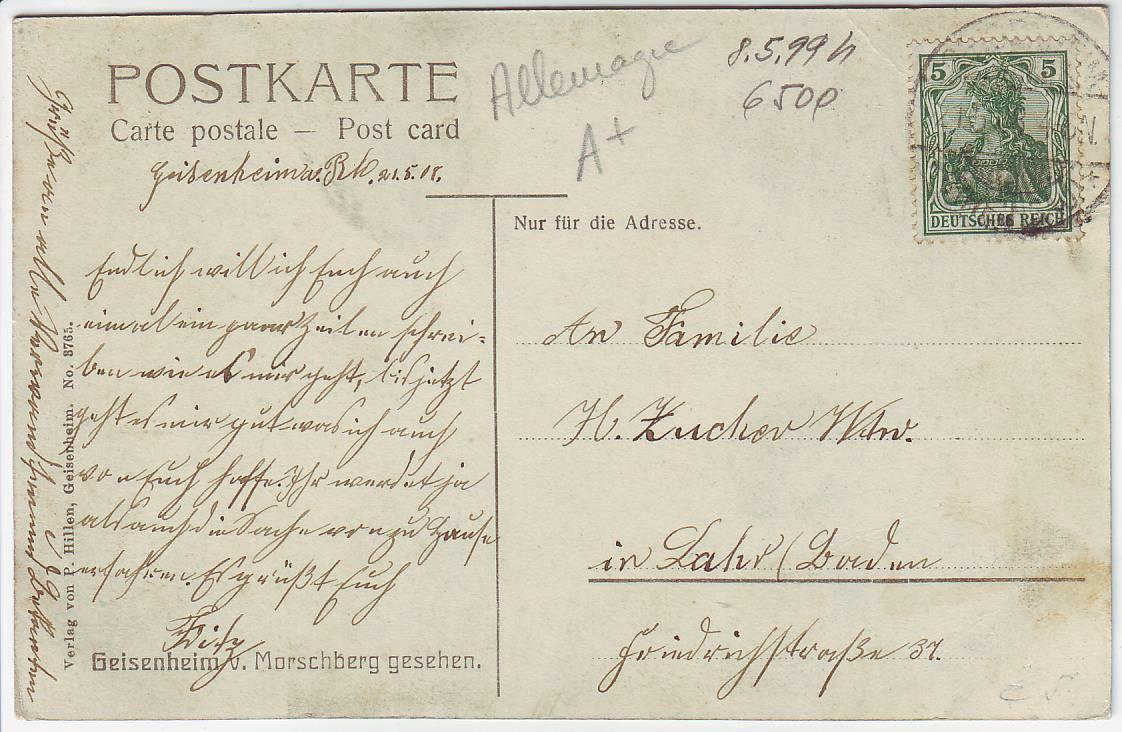 POSTKARTE
Carte postale — Post card
Allemagne
A+
8.5.99 h
6500
Geisenheim a. Rh. 21.5.08.
5 5
DEUTSCHES REICH
Nur für die Adresse.
Endlich will ich Euch auch
einmal ein paar Zeilen schrei-
ben wie es mir geht, bis jetzt
geht es mir gut was ich auch
von Euch hoffe. Ihr werdet ja
als auch die Sache von zu Hause
erfahren Es grüßt Euch
Fritz
Geisenheim v. Morschberg gesehen.
Grüße an alle Verwandten und Bekannten
Verlag von P. Hillen, Geisenheim. No. 3765.
An Familie
H. Zucker Wtw.
in Lahr (Baden
Friedrichstraße 37.